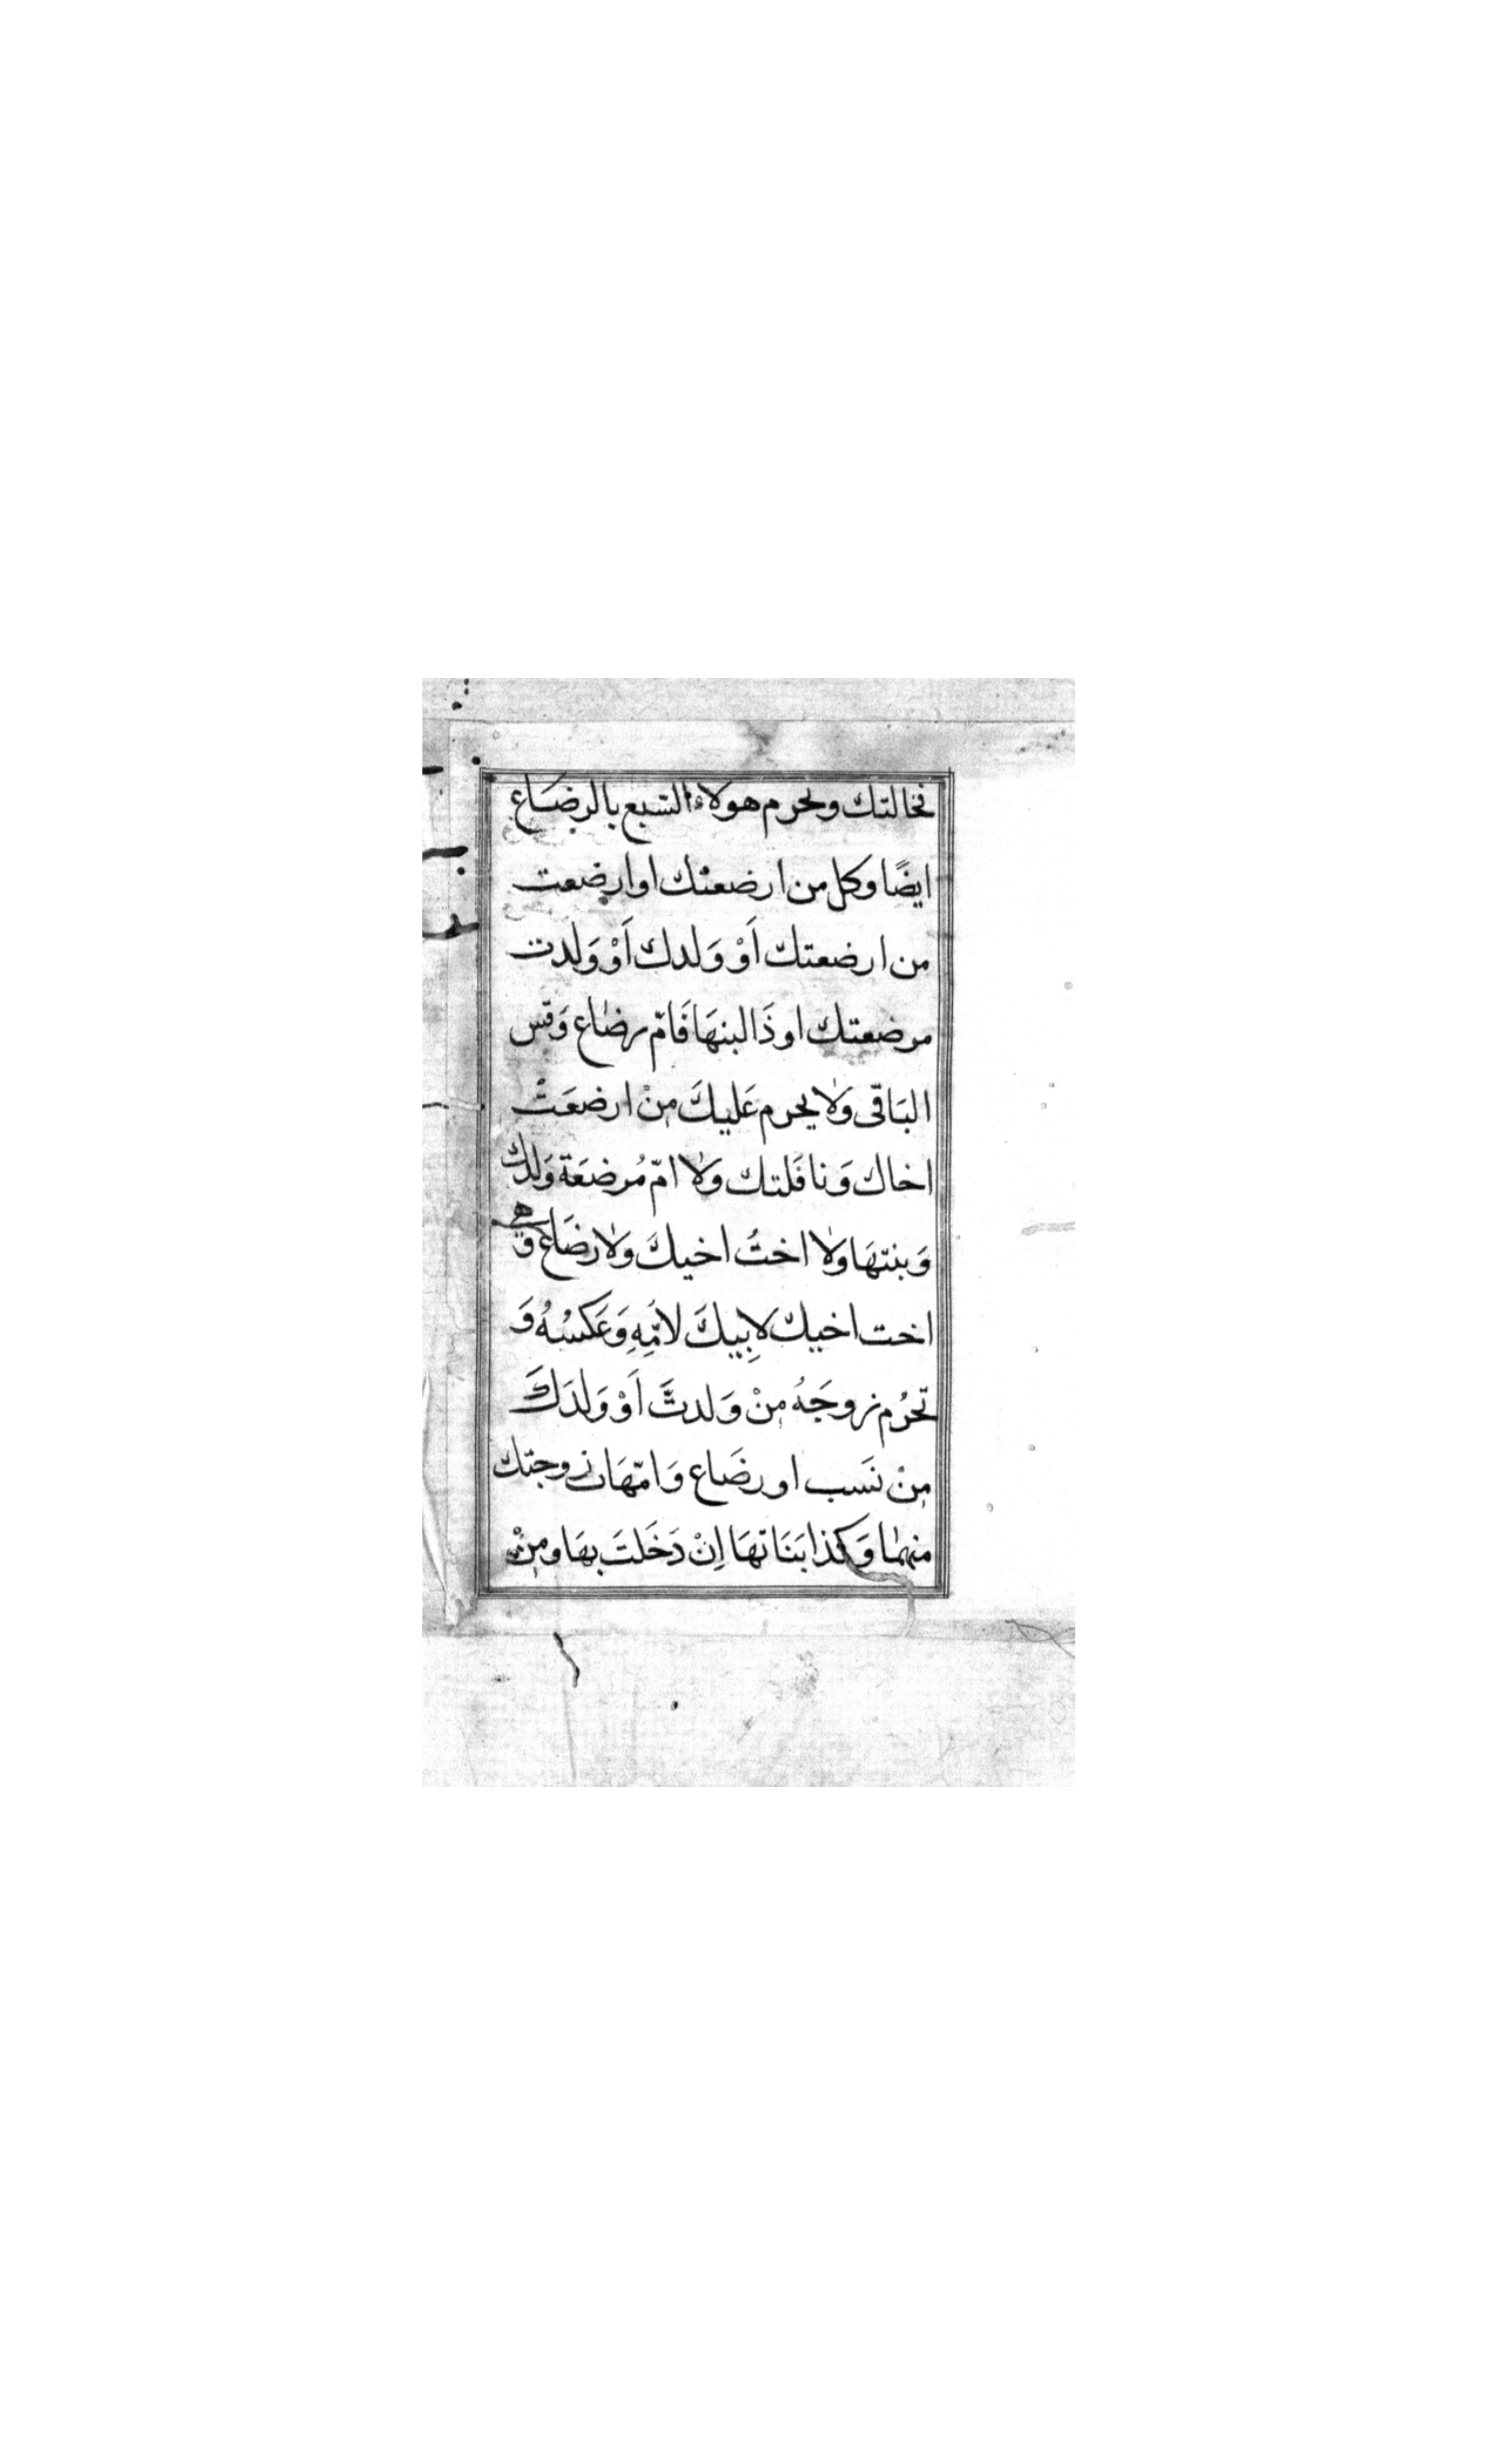 فخالتك ويحرم هولاء السبع بالرضاع
ايضًا وكل من ارضعتك او ارضعت
من ارضعتك اَوْ وَلدك اَوْ وَلدت
مرضعتك او ذَا لبنهَا فَامّ رضاع وَقس
البَاقى وَلا يحرم عَليكَ مِنْ ارضعَتْ
اخاك وَنافَلتك وَلا امّ مُرضعَة وَلدك
وَبنتهَا وَلا اختُ اخيكَ وَلا رضَاع وَهى
اخت اخيك لابِيكَ لامّهِ وَعَكسُهُ وَ
تحرُم زوجَهُ مِنْ وَلدتَّ اَوْ وَلدَكَ
مِنْ نَسَب او رضَاع وَامّهَات زوجتك
منهما وَكذا بَنَاتهَا اِنْ دَخَلتَ بهَا ومِنْ